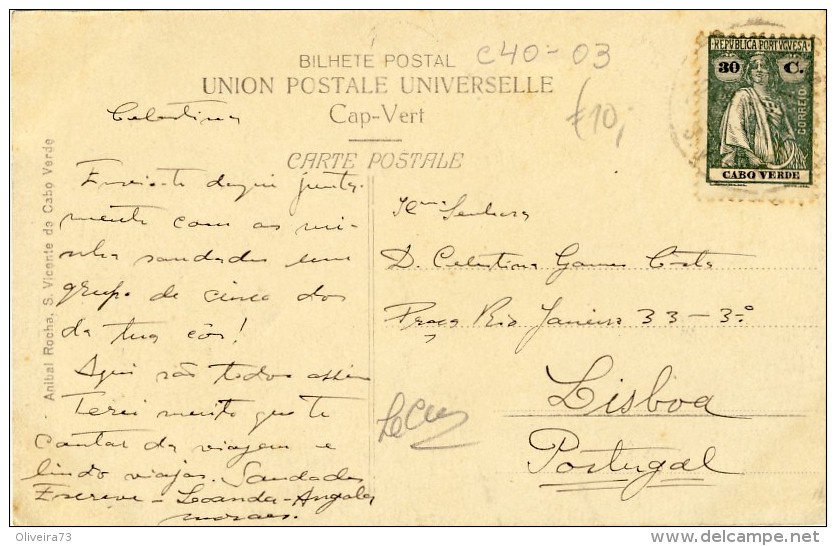 BILHETE POSTAL
UNION POSTALE UNIVERSELLE
Cap-Vert
CARTE POSTALE
C40-03
€10,
REPUBLICA PORTUGUESA
30 C.
CORREIO
CABO VERDE
Anibal Rocha, S. Vicente de Cabo Verde
Celestina
Envio-te daqui junta-
mente com as mi-
nha saudades um
grupo de cinco dos
da tua côr!
Aqui são todos assim
Terei muito que te
contar da viagem e
lindo viajar. Saudades
Escreve - Loanda - Angola
Moraes.
Senhora
D. Celestina Gomes Costa
Praça Rio Janeiro 33-3º
Lisboa
Portugal
Oliveira73
delcampe.net